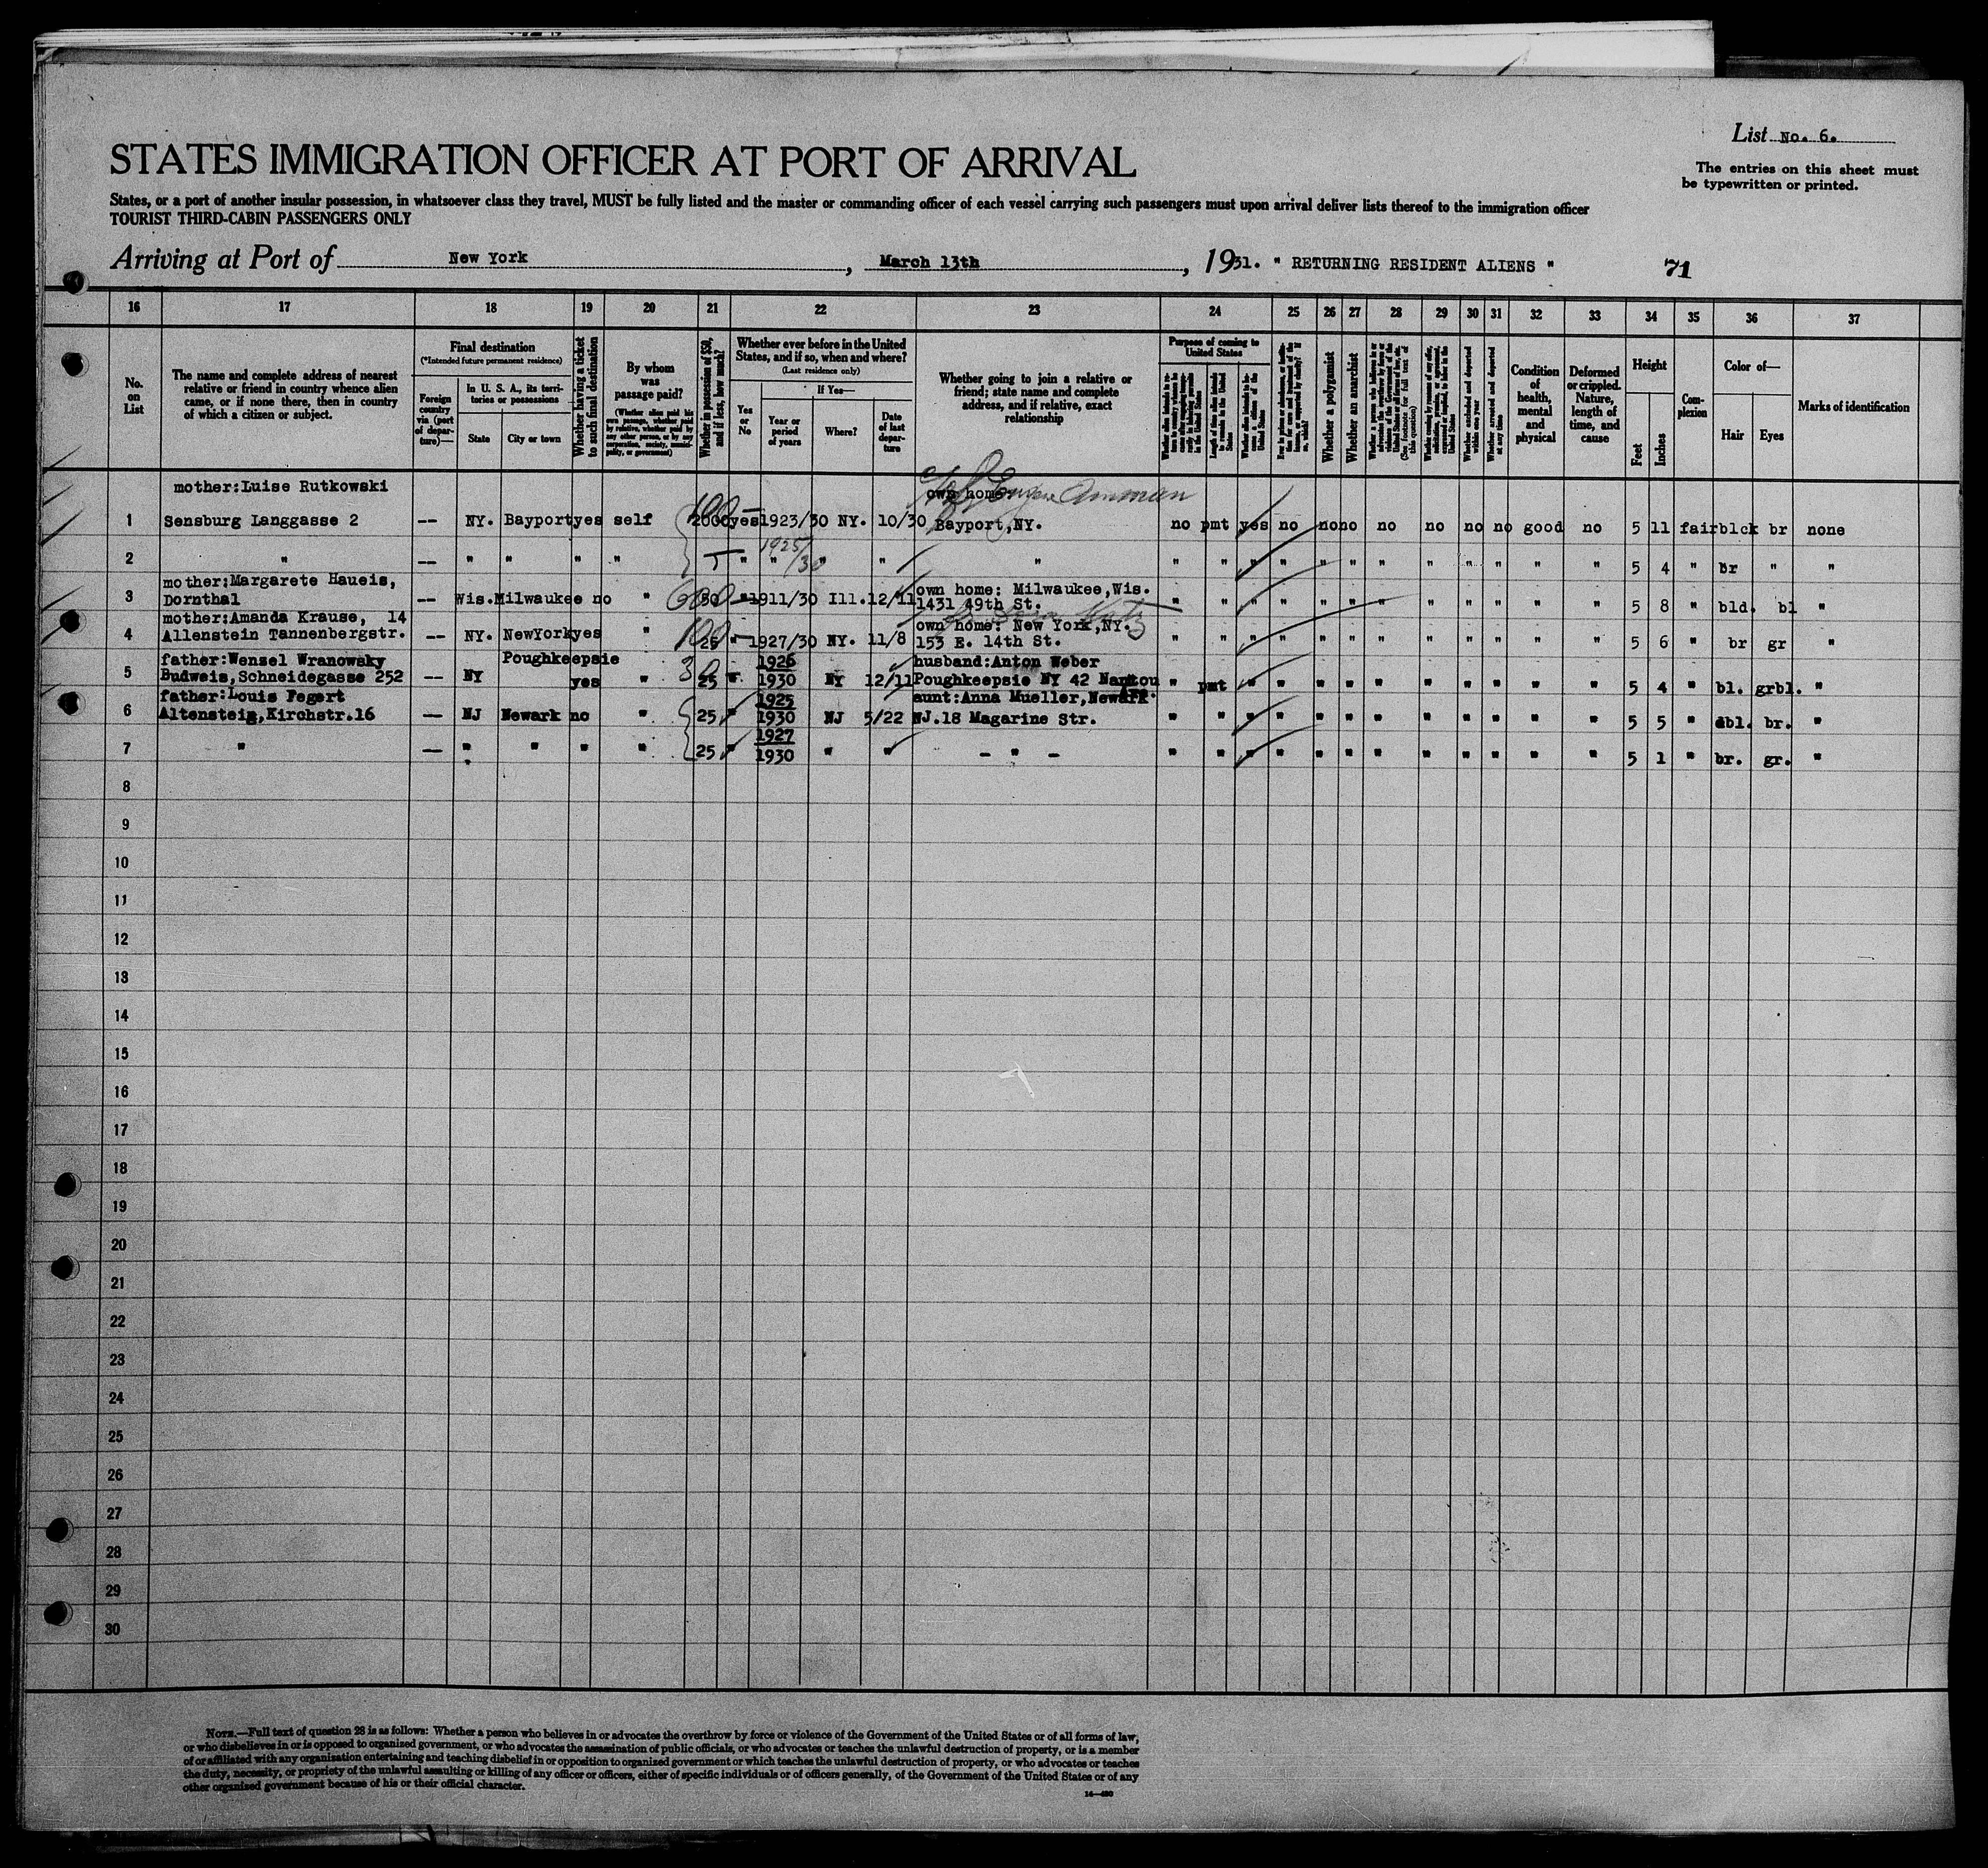 List No. 6.
STATES IMMIGRATION OFFICER AT PORT OF ARRIVAL
The entries on this sheet must
be typewritten or printed.
States, or a port of another insular possession, in whatsoever class they travel, MUST be fully listed and the master or commanding officer of each vessel carrying such passengers must upon arrival deliver lists thereof to the immigration officer
TOURIST THIRD-CABIN PASSENGERS ONLY
Arriving at Port of New York, March 13th, 1931. " RETURNING RESIDENT ALIENS " 71
16 17 18 19 20 21 22 23 24 25 26 27 28 29 30 31 32 33 34 35 36 37
No. on List
The name and complete address of nearest relative or friend in country whence alien came, or if none there, then in country of which a citizen or subject.
Final destination
(*Intended future permanent residence)
Foreign country via (port of departure)—
In U. S. A., its territories or possessions
State
City or town
Whether having a ticket to such final destination
By whom was passage paid?
(Whether alien paid his own passage, whether paid by relative, whether paid by any other person, or by any corporation, society, municipality, or government)
Whether in possession of $50, and if less, how much?
Whether ever before in the United States, and if so, when and where?
(Last residence only)
Yes or No
If Yes—
Year or period of years
Where?
Date of last departure
Whether going to join a relative or friend; state name and complete address, and if relative, exact relationship
Purpose of coming to United States
Length of time alien intends to remain in the United States
Whether alien intends to become a citizen of the United States
Whether a polygamist
Whether an anarchist
(See footnote for full text of this question)
Whether arrested and deported at any time
Condition of health, mental and physical
Deformed or crippled. Nature, length of time, and cause
Height
Feet
Inches
Complexion
Color of—
Hair
Eyes
Marks of identification
mother:Luise Rutkowski own home Eugene Amman
1 Sensburg Langgasse 2 -- NY. Bayport yes self 100 — 2000 yes 1923/30 NY. 10/30 Bayport,NY. no pmt yes no no no no no no no good no 5 11 fair blck br none
2 " -- " " " " " " 1925/30 " " " " " " " " " " " " " " " " 5 4 " br " "
mother:Margarete Haueis, own home: Milwaukee,Wis.
3 Dornthal -- Wis. Milwaukee no " 600 50 " 1911/30 Ill. 12/11 1431 49th St. " " " " " " " " " " " " 5 8 " bld. bl "
mother:Amanda Krause, 14 own home: New York,NY.
4 Allenstein Tannenbergstr. -- NY. NewYork yes " 100 25 " 1927/30 NY. 11/8 153 E. 14th St. " " " " " " " " " " " " 5 6 " br gr "
father:Wensel Wranowsky Poughkeepsie 1926 husband:Anton Weber
5 Budweis,Schneidegasse 252 -- NY yes " 30 25 " 1930 NY 12/11 Poughkeepsie NY 42 " pmt " " " " " " " " " " 5 4 " bl. grbl. "
father:Louis Fegert 1925 aunt:Anna Mueller,Newark
6 Altensteig,Kirchstr.16 -- NJ Newark no " 25 " 1930 NJ 5/22 NJ.18 Magarine Str. " " " " " " " " " " " " 5 5 " dbl. br. "
1927
7 " -- " " " " 25 " 1930 " " - " - " " " " " " " " " " " " 5 1 " br. gr. "
8
9
10
11
12
13
14
15
16
17
18
19
20
21
22
23
24
25
26
27
28
29
30
NOTE.—Full text of question 28 is as follows: Whether a person who believes in or advocates the overthrow by force or violence of the Government of the United States or of all forms of law,
or who disbelieves in or is opposed to organized government, or who advocates the assassination of public officials, or who advocates or teaches the unlawful destruction of property, or is a member
of or affiliated with any organization entertaining and teaching disbelief in or opposition to organized government or which teaches the unlawful destruction of property, or who advocates or teaches
the duty, necessity, or propriety of the unlawful assaulting or killing of any officer or officers, either of specific individuals or of officers generally, of the Government of the United States or of any
other organized government because of his or their official character.